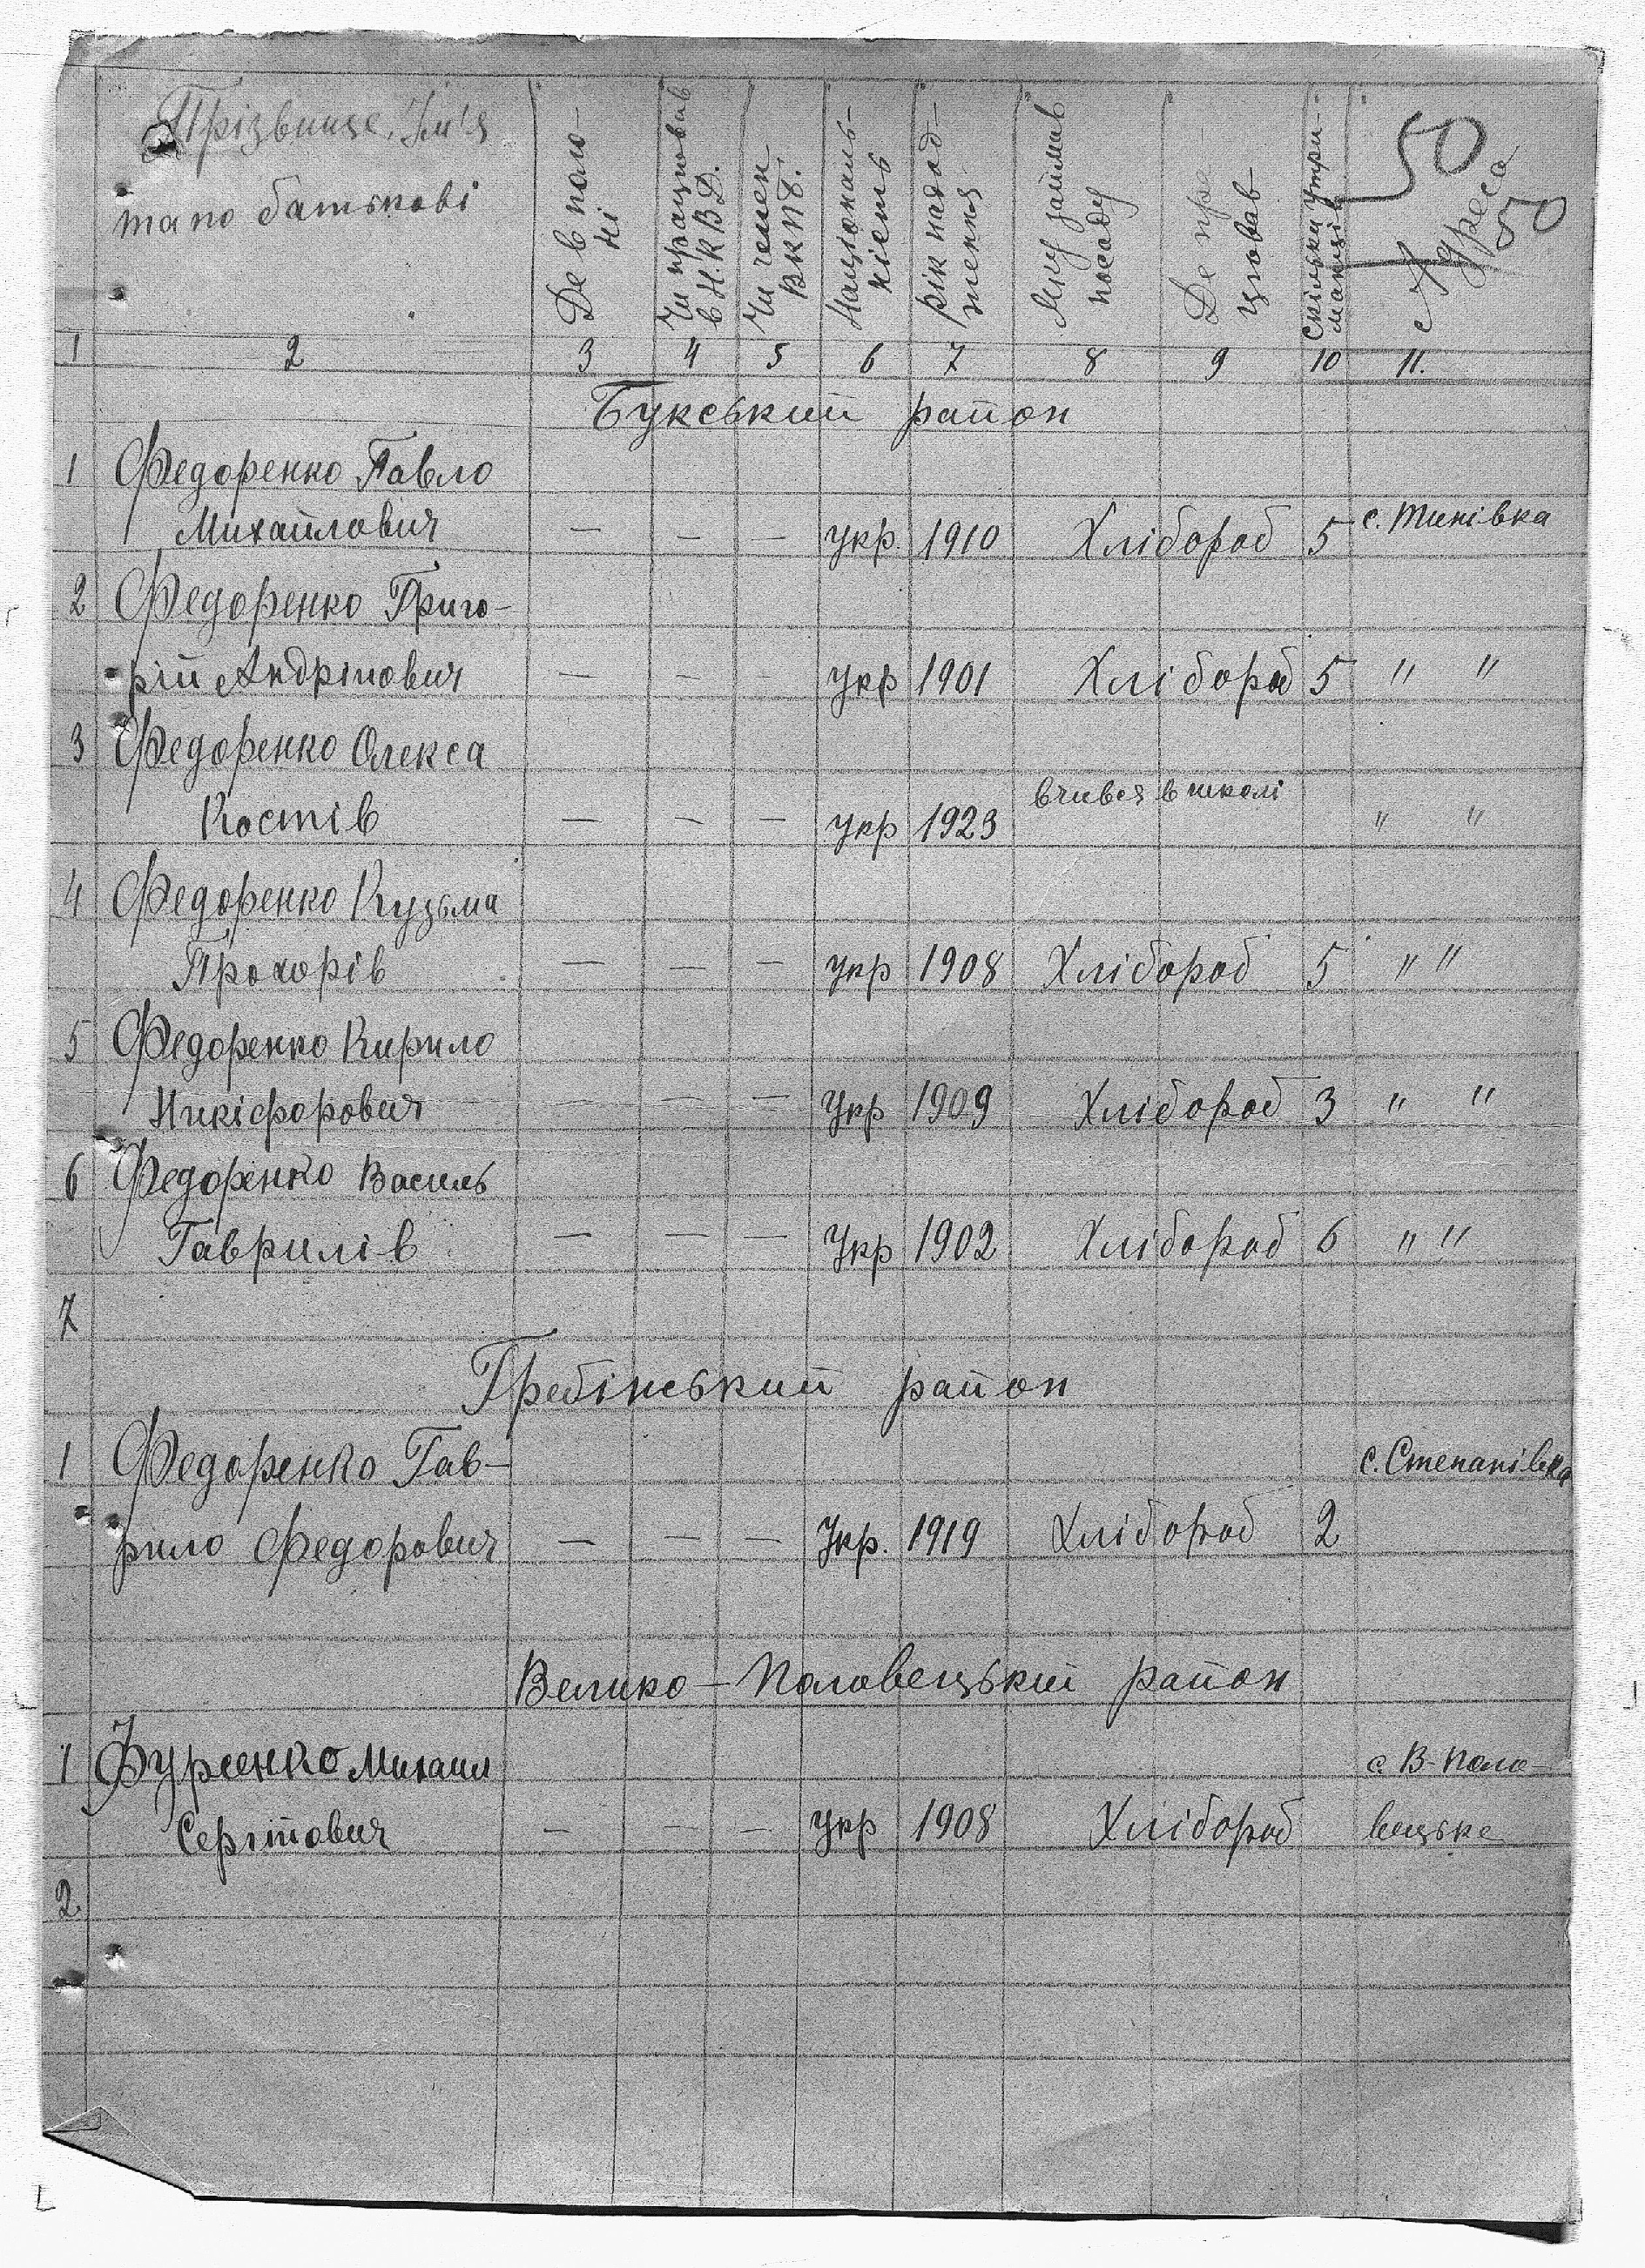 Прізвище, Ім'я
та по батькові
Де в поло-
ні
Чи працював
в Н.К.В.Д.
Чи член
ВКПб.
Національ-
ність
рік народ-
ження
Яку займав
посаду
Де пра-
цював
Скільки утри-
манців
Адреса
50
50
1 2 3 4 5 6 7 8 9 10 11.
Букський район
1 Федоренко Павло
Михайлович — — — укр. 1910 Хлібороб 5 с. Тинівка
2 Федоренко Григо-
рій Андрійович — — укр 1901 Хлібороб 5 " "
3 Федоренко Олекса
Костів — — — укр 1923 вчився в школі " "
4 Федоренко Кузьма
Прохорів — — — укр 1908 Хлібороб 5 " "
5 Федоренко Кирило
Никіфорович — — — Укр 1909 Хлібороб 3 " "
6 Федоренко Василь
Гаврилів — — — Укр 1902 Хлібороб 6 " "
7
Гребінський район
1 Федоренко Гав- с. Степанівка
рило Федорович — — — Укр. 1919 Хлібороб 2
Велико-Половецький район
1 Фурсенко Михаил с. В-Поло-
Сергійович — — — Укр 1908 Хлібороб вецьке
2